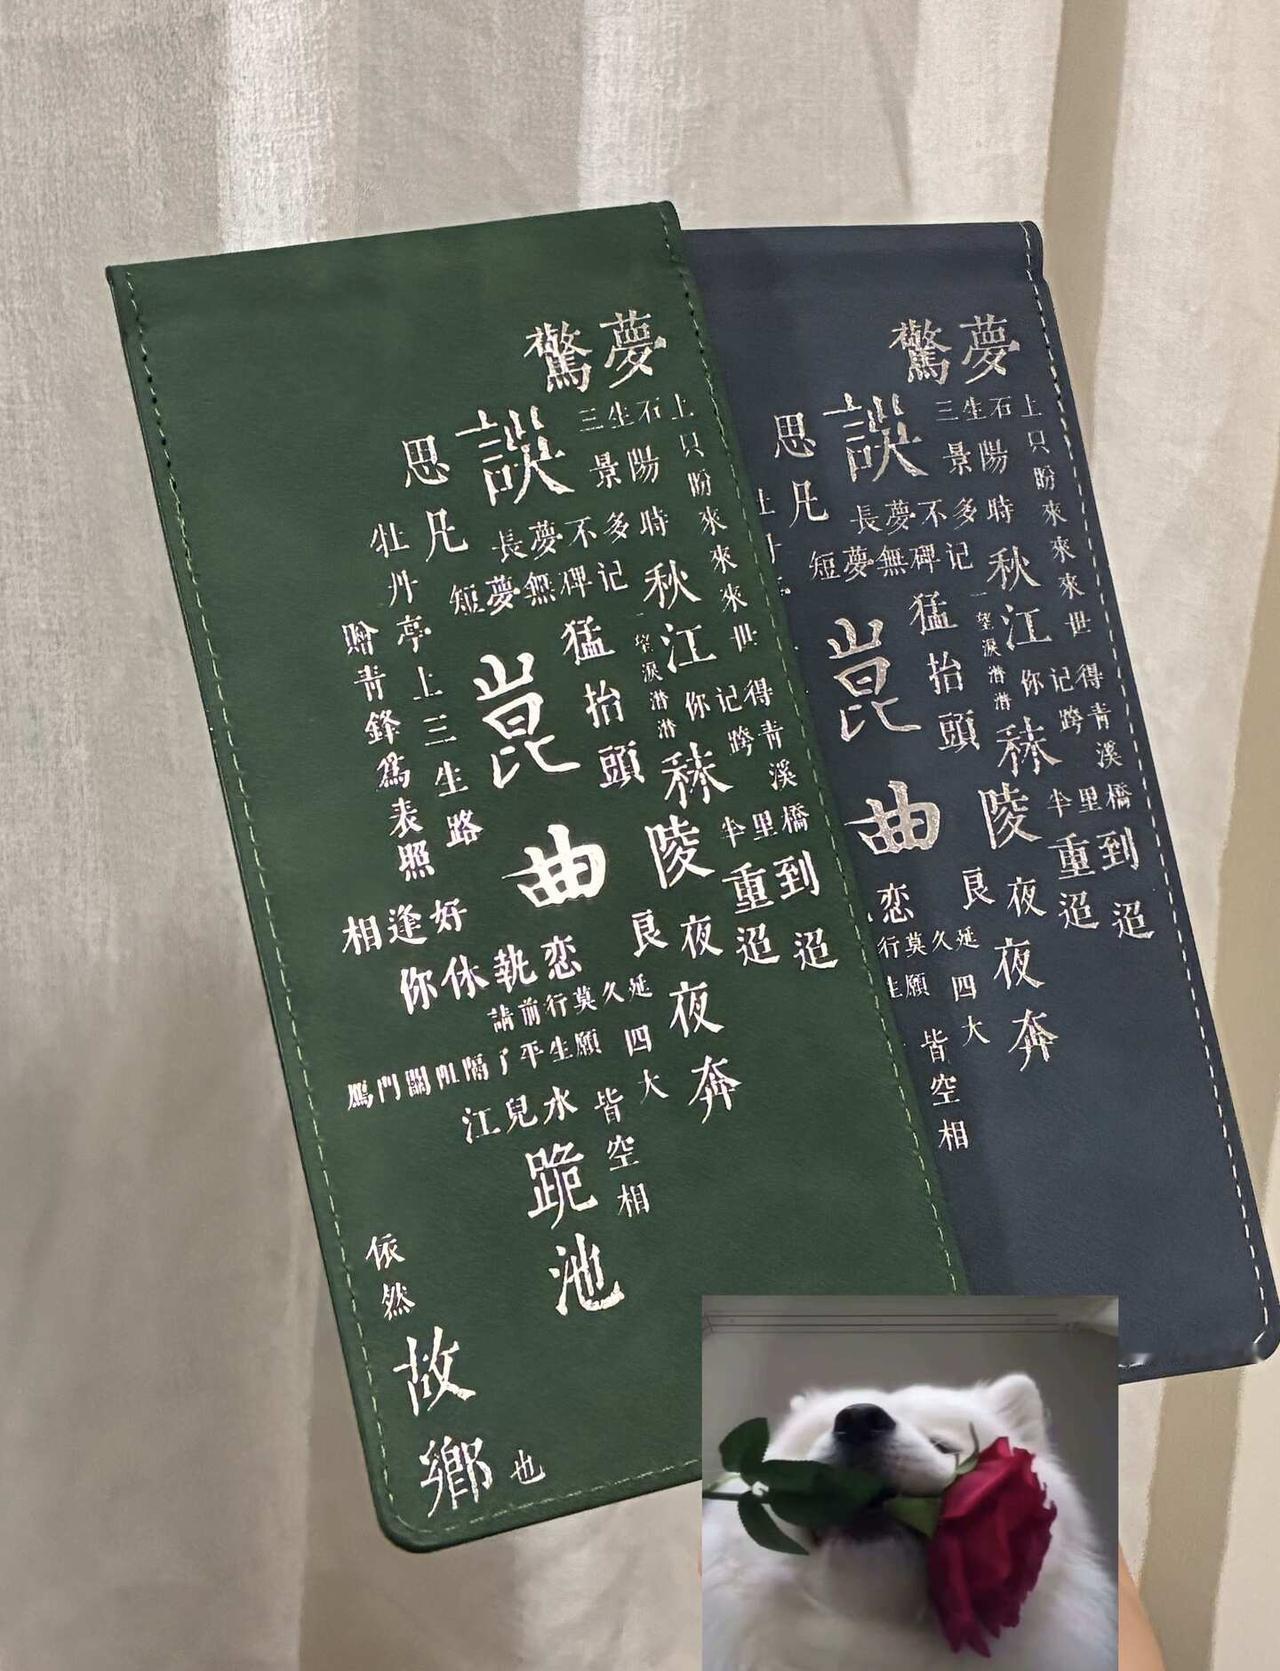 驚夢
誤
思凡
三生石上只盼來來來世
景陽
長夢不多時
短夢無碑记
牡丹亭上三生路
贈青鋒為表照
崑曲
猛抬頭
秋江
一望淚潸潸
秣陵
你记得跨青溪半里橋
重到
迢迢
良夜
夜奔
相逢好
你休執恋
請前行莫久延
雁門關阻隔了平生願
四大皆空相
江兒水
跪池
依然故鄉也
驚夢
誤
思凡
三生石上只盼來來來世
景陽
長夢不多時
短夢無碑记
崑曲
猛抬頭
秋江
一望淚潸潸
秣陵
你记得跨青溪半里橋
重到
迢迢
良夜
夜奔
恋
行莫久延
生願
四大皆空相